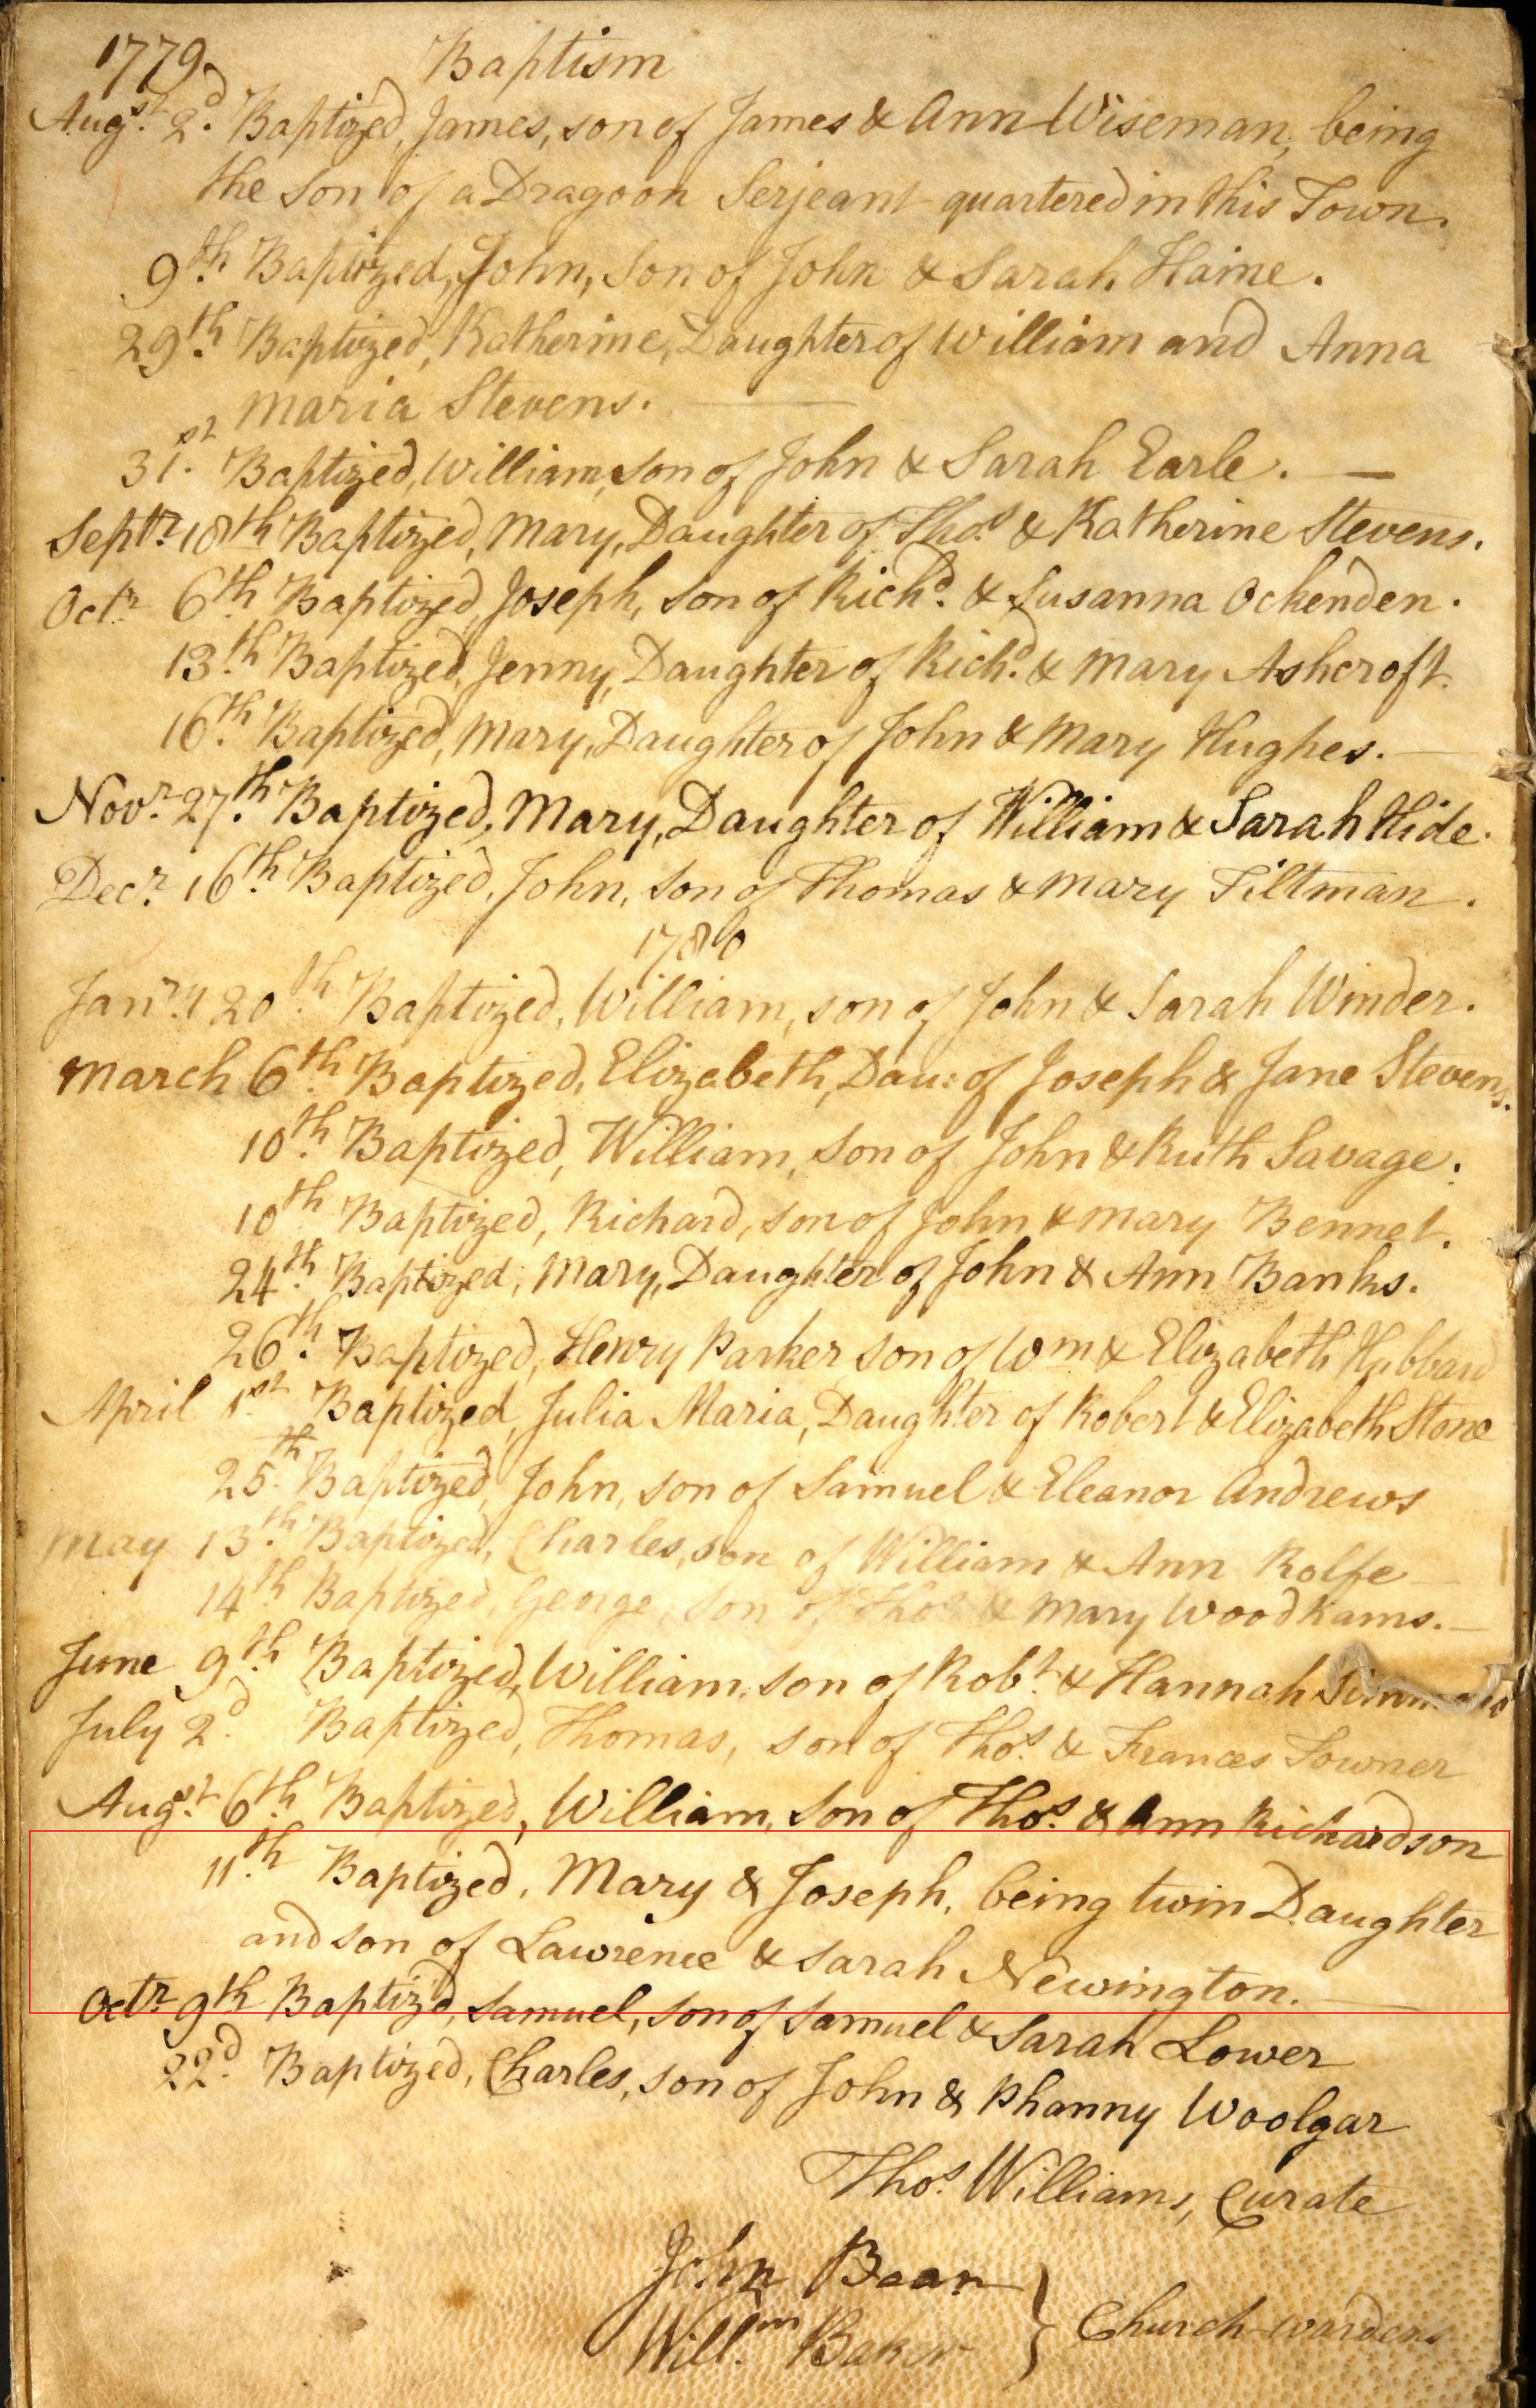 1779 Baptism
Augst. 2d. Baptized, James, son of James & Ann Wiseman, being
the Son of a Dragoon Serjeant quartered in this Town.
9th. Baptized, John, Son of John & Sarah Haine.
29th. Baptized, Katherine, Daughter of William and Anna
Maria Stevens.
31st. Baptized, William, son of John & Sarah Earle.
Septr. 18th Baptized, Mary, Daughter of Thos. & Katherine Stevens.
Octr. 6th Baptized, Joseph, Son of Richd. & Susanna Ockenden.
13.th Baptized, Jenny, Daughter of Richd. & Mary Ashcroft.
16th. Baptized, Mary, Daughter of John & Mary Hughes.
Novr. 27th. Baptized, Mary, Daughter of William & Sarah Hide.
Decr. 16th. Baptized, John, Son of Thomas & Mary Tiltman.
1780
Janry 20th. Baptized, William, son of John & Sarah Winder.
March 6th. Baptized, Elizabeth, Dau: of Joseph & Jane Stevens.
10th. Baptized, William, Son of John & Ruth Savage.
10th Baptized, Richard, son of John & Mary Bennet.
24th. Baptized, Mary, Daughter of John & Ann Banks.
26th. Baptized, Henry Parker son of Wm & Elizabeth Hubbard
April 1st. Baptized, Julia Maria, Daughter of Robert & Elizabeth Stone
25th. Baptized, John, son of Samuel & Eleanor Andrews
May 13th. Baptized, Charles, son of William & Ann Rolfe
14th Baptized, George, Son of Thos. & Mary Woodhams.
June 9th. Baptized, William, son of Robt. & Hannah Simmons
July 2d. Baptized, Thomas, son of Thos. & Frances Towner
Augst. 6th. Baptized, William, Son of Thos. & Ann Richardson
11th. Baptized, Mary & Joseph, being twin Daughter
and son of Lawrence & Sarah Newington.
Octr. 9th Baptizd, Samuel, Son of Samuel & Sarah Lower
22d. Baptized, Charles, son of John & Phanny Woolgar
Thos. Williams, Curate
John Bean
Willm. Baker } Church-wardens